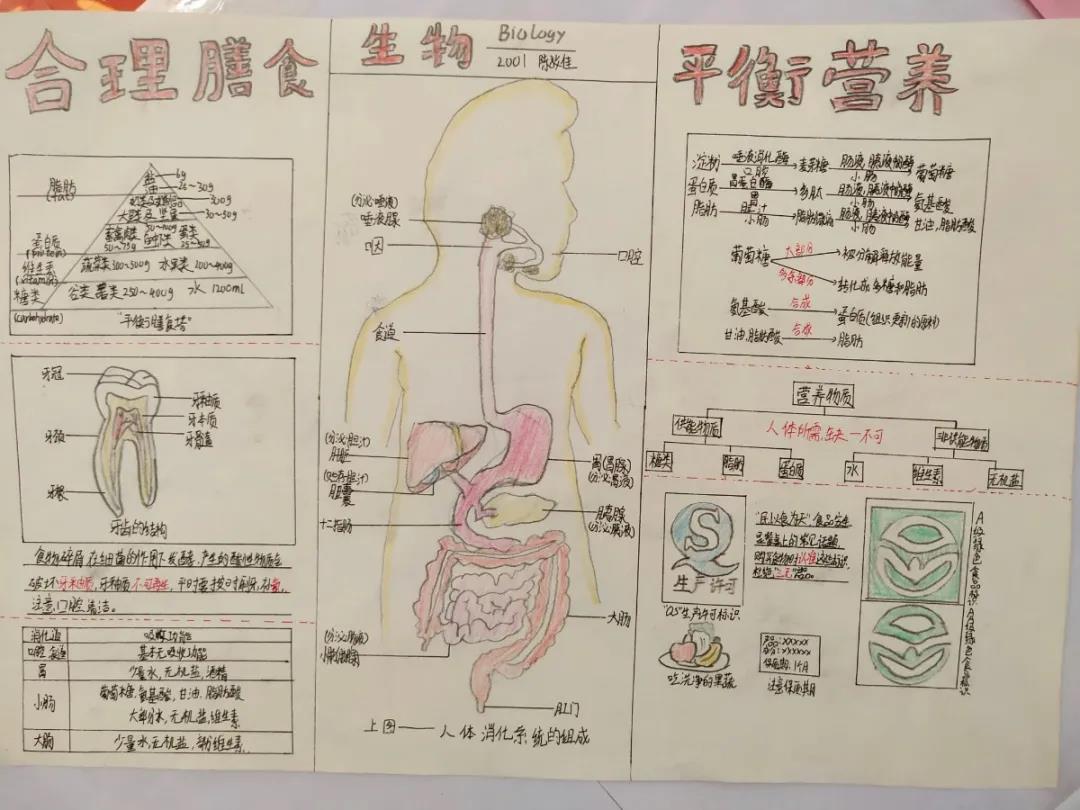 合理膳食
生物
Biology
2001
平衡营养
脂肪
(fat)
蛋白质
(protein)
维生素
(vitamin)
糖类
(carbohydrate)
盐 6g
油 25~30g
奶类及奶制品 300g
大豆及坚果 30~50g
畜禽肉类 50~75g
鱼虾类 50~100g
蛋类 25~50g
蔬菜类300~500g 水果类200~400g
谷类 薯类250~400g 水1200ml
"平衡膳食塔"
牙冠
牙颈
牙根
牙釉质
牙本质
牙髓
牙齿的结构
食物碎屑在细菌的作用下发酵,产生的酸性物质会
破坏牙釉质,牙釉质不可再生,平时要按时刷牙,
注意口腔清洁。
消化道 吸收功能
口腔 食道 基本无吸收功能
胃 少量水,无机盐,酒精
小肠 葡萄糖,氨基酸,甘油,脂肪酸
大部分水,无机盐,维生素
大肠 少量水,无机盐,部分维生素
(分泌唾液)
唾液腺
口腔
食道
(分泌胆汁)
肝脏
(贮存胆汁)
胆囊
十二指肠
胃(胃腺)
(分泌胃液)
胰腺
(分泌胰液)
大肠
(分泌肠液)
小肠(肠腺)
肛门
上图——人体消化系统的组成
淀粉 唾液淀粉酶 口腔 麦芽糖 肠液,胰液中的酶 小肠 葡萄糖
蛋白质 胃蛋白酶 胃 多肽 肠液,胰液中的酶 小肠 氨基酸
脂肪 胆汁 小肠 脂肪微粒 肠液,胰液中的酶 小肠 甘油,脂肪酸
葡萄糖 大部分 被分解释放能量
多余部分 转化成多糖和脂肪
氨基酸 合成 蛋白质(组织更新的原料)
甘油,脂肪酸 合成 脂肪
营养物质
供能物质 人体所需,缺一不可 非供能物质
糖类 脂肪 蛋白质 水 维生素 无机盐
S
生产许可
"QS"生产许可标识
"民以食为天",食品安全
是餐桌上的常见话题,
购买食物时认准这些标识,
拒绝"三无"产品。
A级绿色食品标识
AA级绿色食品标识
吃洗净的果蔬
xxxxx
xxxxxx
保质期:1个月
注意保质期